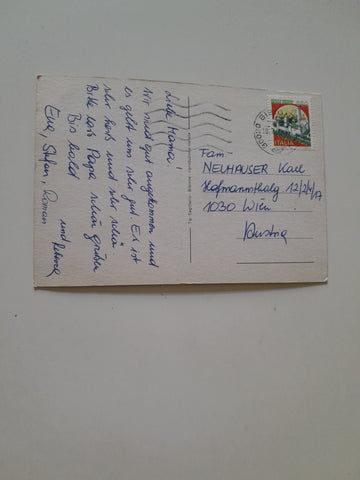 Liebe Mama!
Wir sind gut angekommen und
es geht uns sehr gut. Es ist
sehr heiß und sehr schön
Bitte lass Papa schön grüßen
Bis bald
Eva, Stefan, Roman
und
Fam.
NEUHAUSER Karl
Hofmannsthalg 12/2/4/17
1030 Wien
Austria
ITALIA